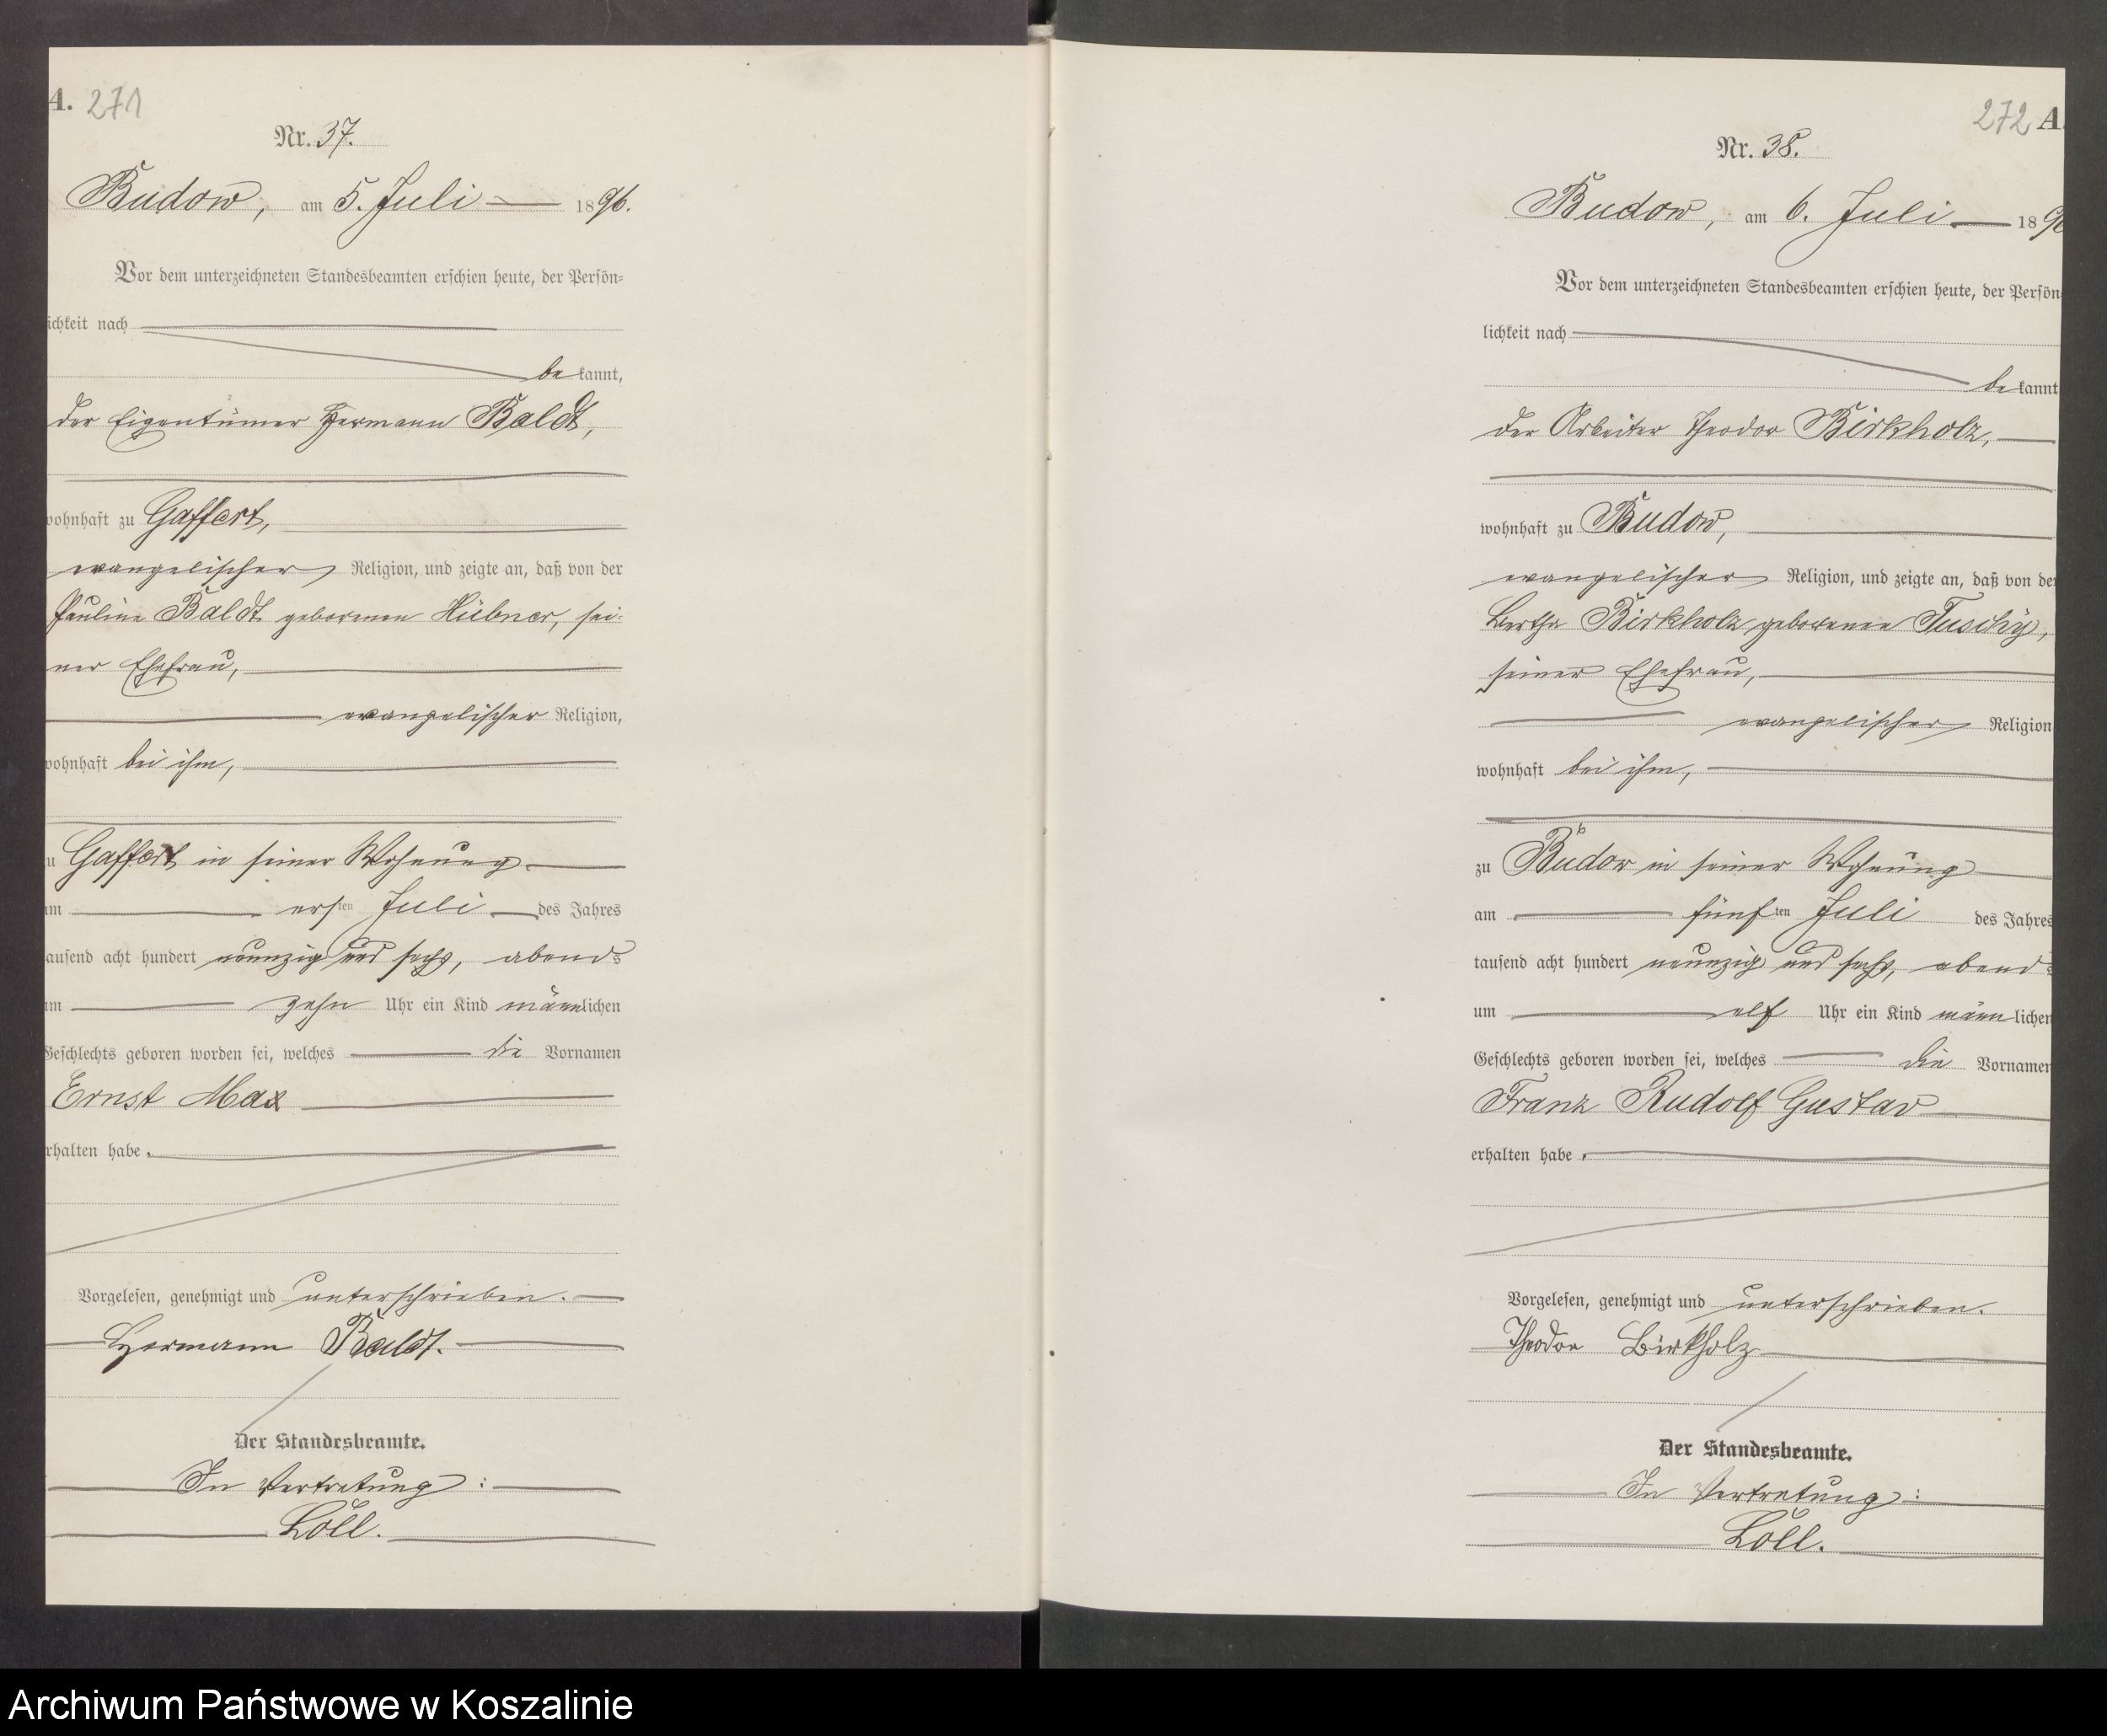 A. 271
Nr. 37.
Budow, am 5. Juli 1896.
Vor dem unterzeichneten Standesbeamten erschien heute, der Persön-
ichkeit nach
be kannt,
der Eigentümer Hermann Baldt,
wohnhaft zu Gaffert,
evangelischer Religion, und zeigte an, daß von der
Pauline Baldt geborenen Hübner, sei-
ner Ehefrau,
evangelischer Religion,
wohnhaft bei ihm,
zu Gaffert in seiner Wohnung
am ersten Juli des Jahres
tausend acht hundert neunzig und sechs, abends
um zehn Uhr ein Kind männlichen
Geschlechts geboren worden sei, welches die Vornamen
Ernst Max
erhalten habe.
Vorgelesen, genehmigt und unterschrieben.
Hermann Baldt.
Der Standesbeamte.
In Vertretung:
Löll.
272 A
Nr. 38.
Budow, am 6. Juli 1896
Vor dem unterzeichneten Standesbeamten erschien heute, der Persön
lichkeit nach
be kannt
der Arbeiter Theodor Birkholz,
wohnhaft zu Budow,
evangelischer Religion, und zeigte an, daß von der
Bertha Birkholz geborenen Tuschy,
seiner Ehefrau,
evangelischer Religion
wohnhaft bei ihm,
zu Budow in seiner Wohnung
am fünften Juli des Jahres
tausend acht hundert neunzig und sechs, abends
um elf Uhr ein Kind männlichen
Geschlechts geboren worden sei, welches die Vornamen
Franz Rudolf Gustav
erhalten habe.
Vorgelesen, genehmigt und unterschrieben.
Theodor Birkholz
Der Standesbeamte.
In Vertretung:
Löll.
Archiwum Państwowe w Koszalinie